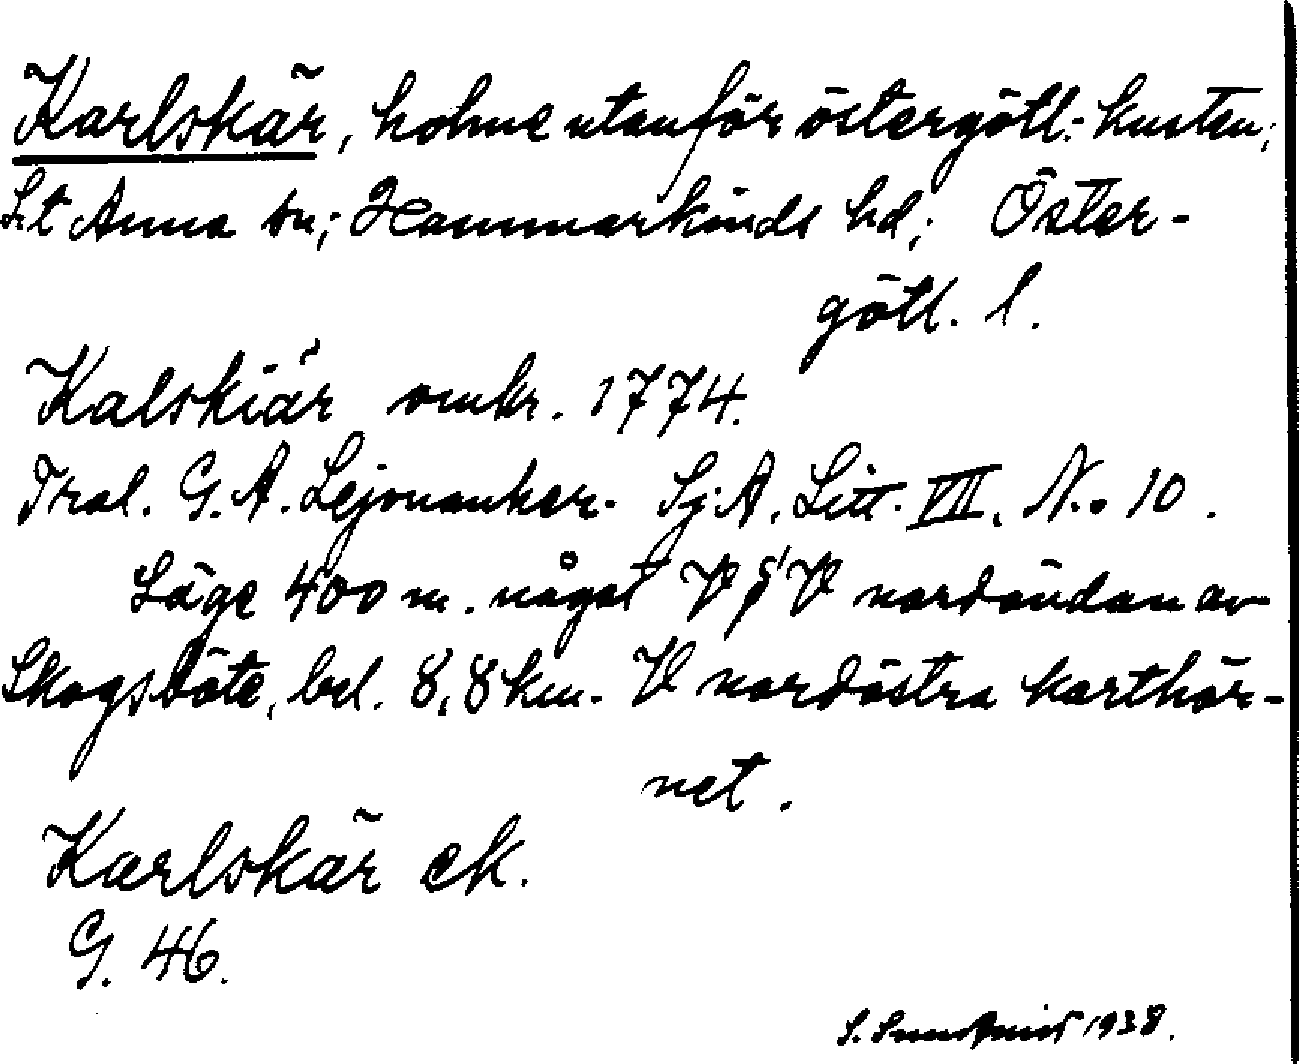 Karlskär, holme utanför östergötl.-kusten;
S:t Anna sn; Hammarkinds hd; Öster-
götl. l.
Kalskiär omkr. 1774.
Tral. G. A. Lejonanker. Sj. A. Litt. VII. No 10.
Läge 400 m. något V NV nordändan av
Skogsböte, bel. 8,8 km. V nordöstra karthör-
net.
Karlskär ek.
G. 46.
S. 1938.